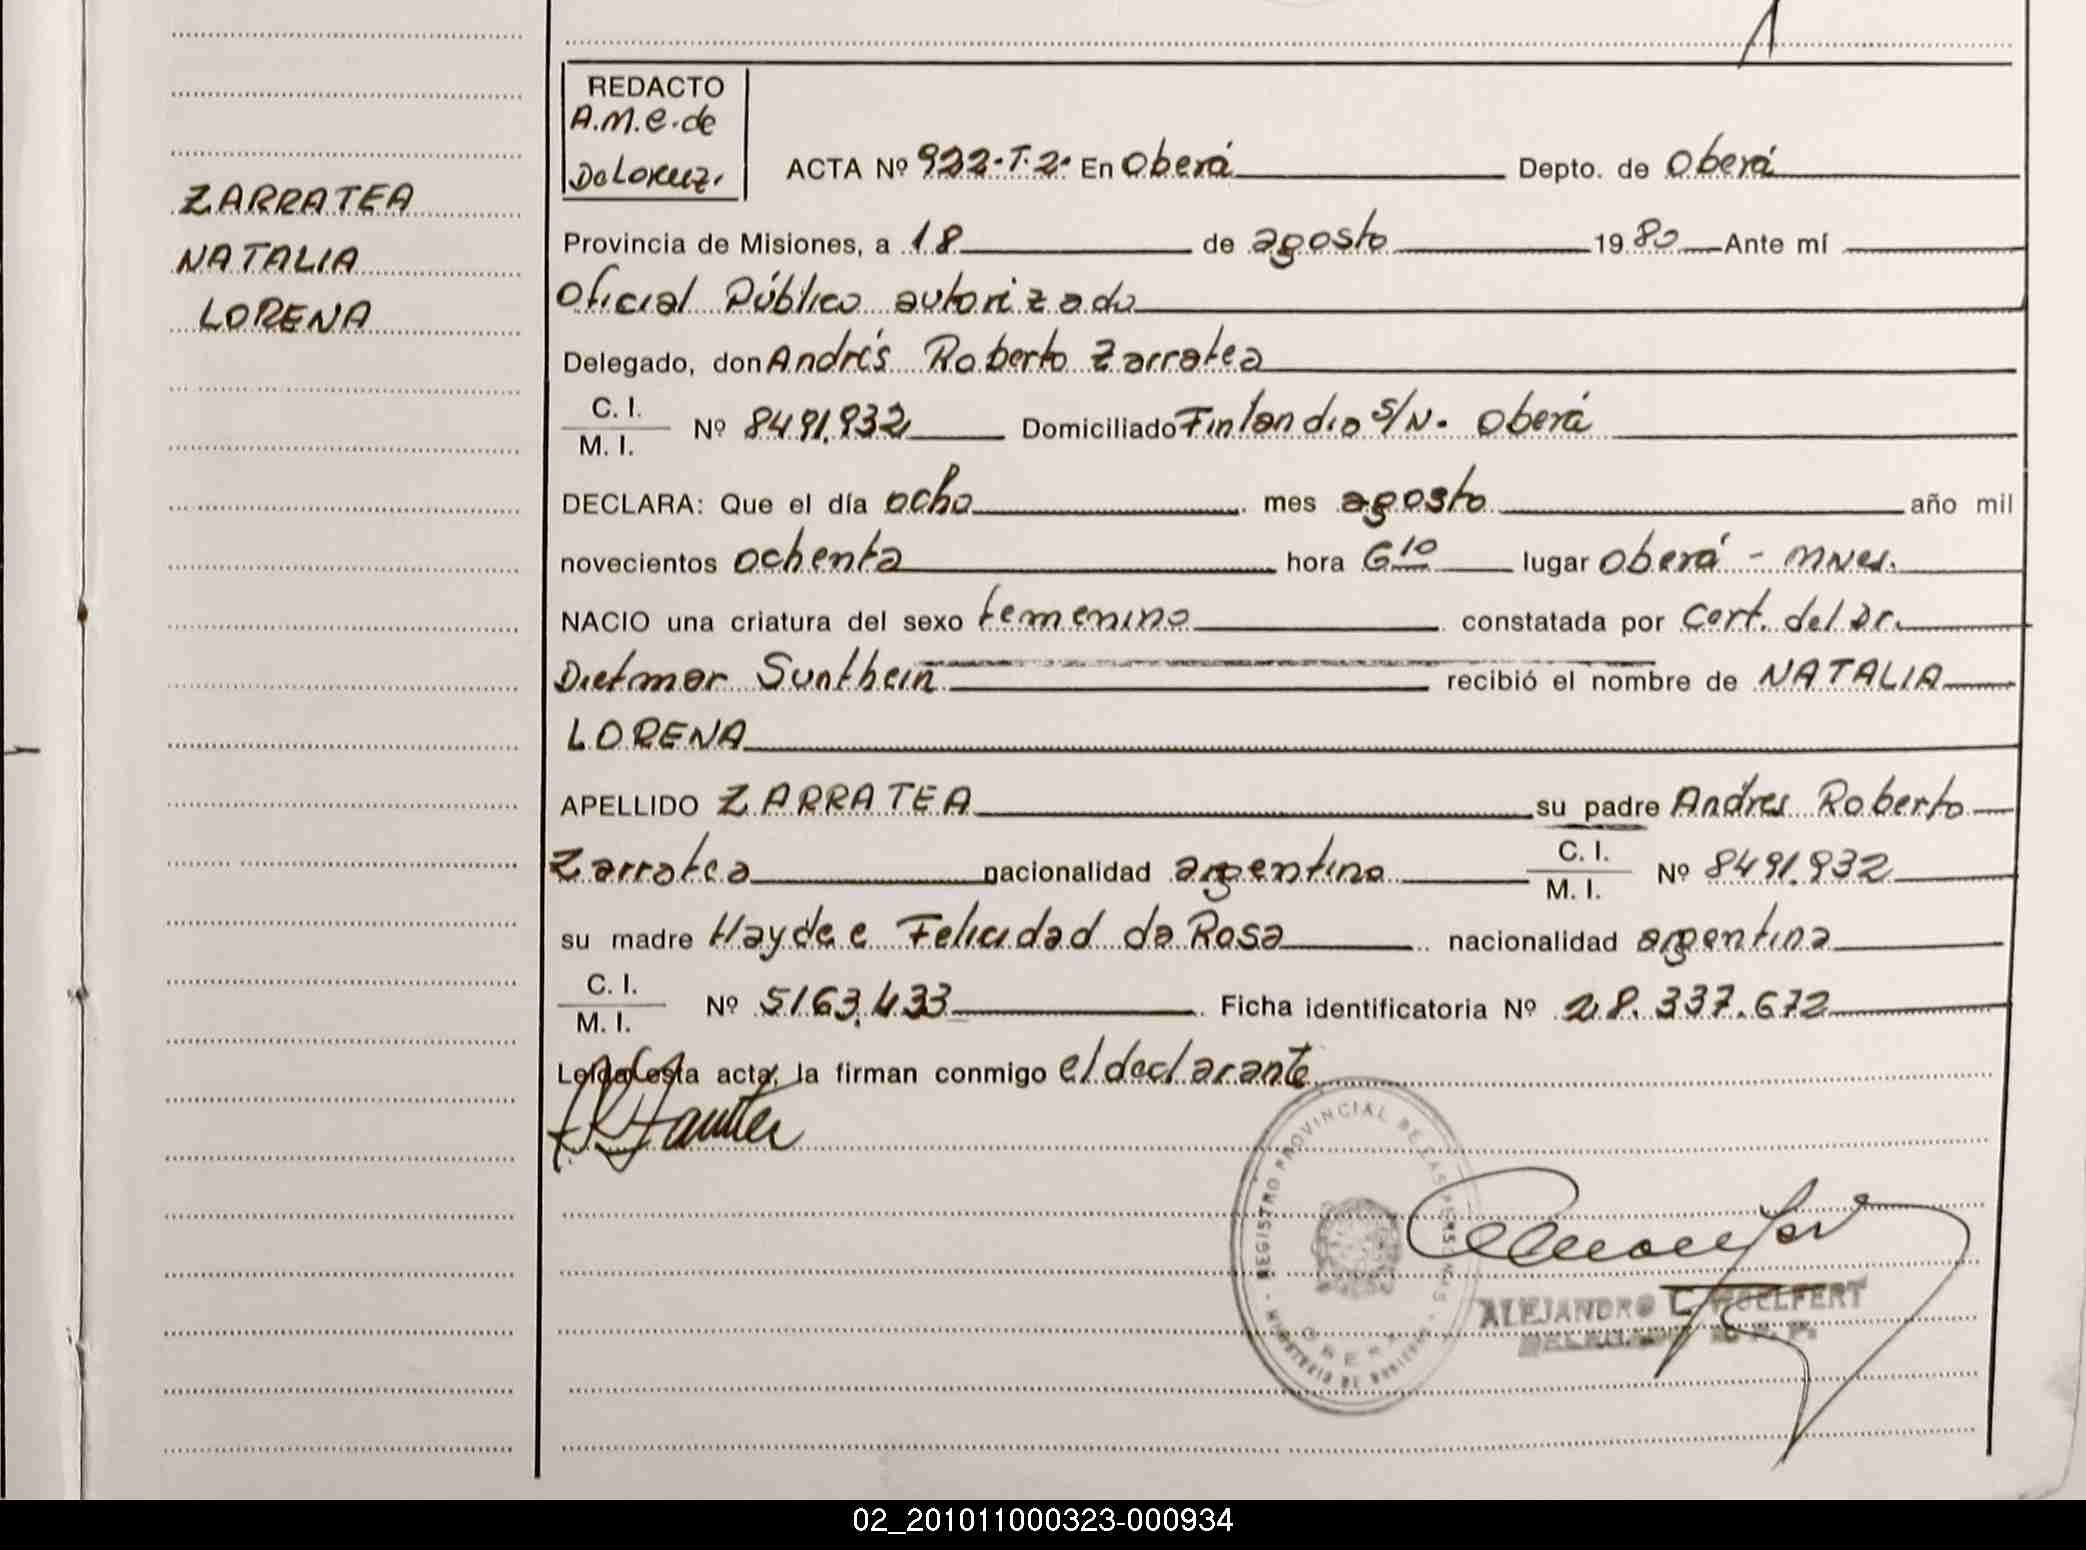 REDACTO
A.M.e.de
DaLoruz.
ZARRATEA
NATALIA
LORENA
ACTA Nº 922-T.2- En Oberá Depto. de Oberá
Provincia de Misiones, a 18 de agosto 1980 Ante mí
Oficial Público autorizado
Delegado, don Andrés Roberto Zarratea
C. I.
M. I. Nº 8491.932 Domiciliado Finlandia S/N. Oberá
DECLARA: Que el día ocho mes agosto año mil
novecientos ochenta hora 6 10 lugar Oberá - Mnes.
NACIO una criatura del sexo femenino constatada por Cert. del Dr.
Dietmar Sunthein recibió el nombre de NATALIA
LORENA
APELLIDO ZARRATEA su padre Andrés Roberto
Zarratea nacionalidad argentina C. I.
M. I. Nº 8491.932
su madre Haydee Felicidad da Rosa nacionalidad argentina
C. I.
M. I. Nº 5163.433 Ficha identificatoria Nº 28.337.672
Leída esta acta, la firman conmigo el declarante
REGISTRO PROVINCIAL DE LAS PERSONAS
MINISTERIO DE GOBIERNO
OBERA
ALEJANDRO L. WOELFERT
02_201011000323-000934